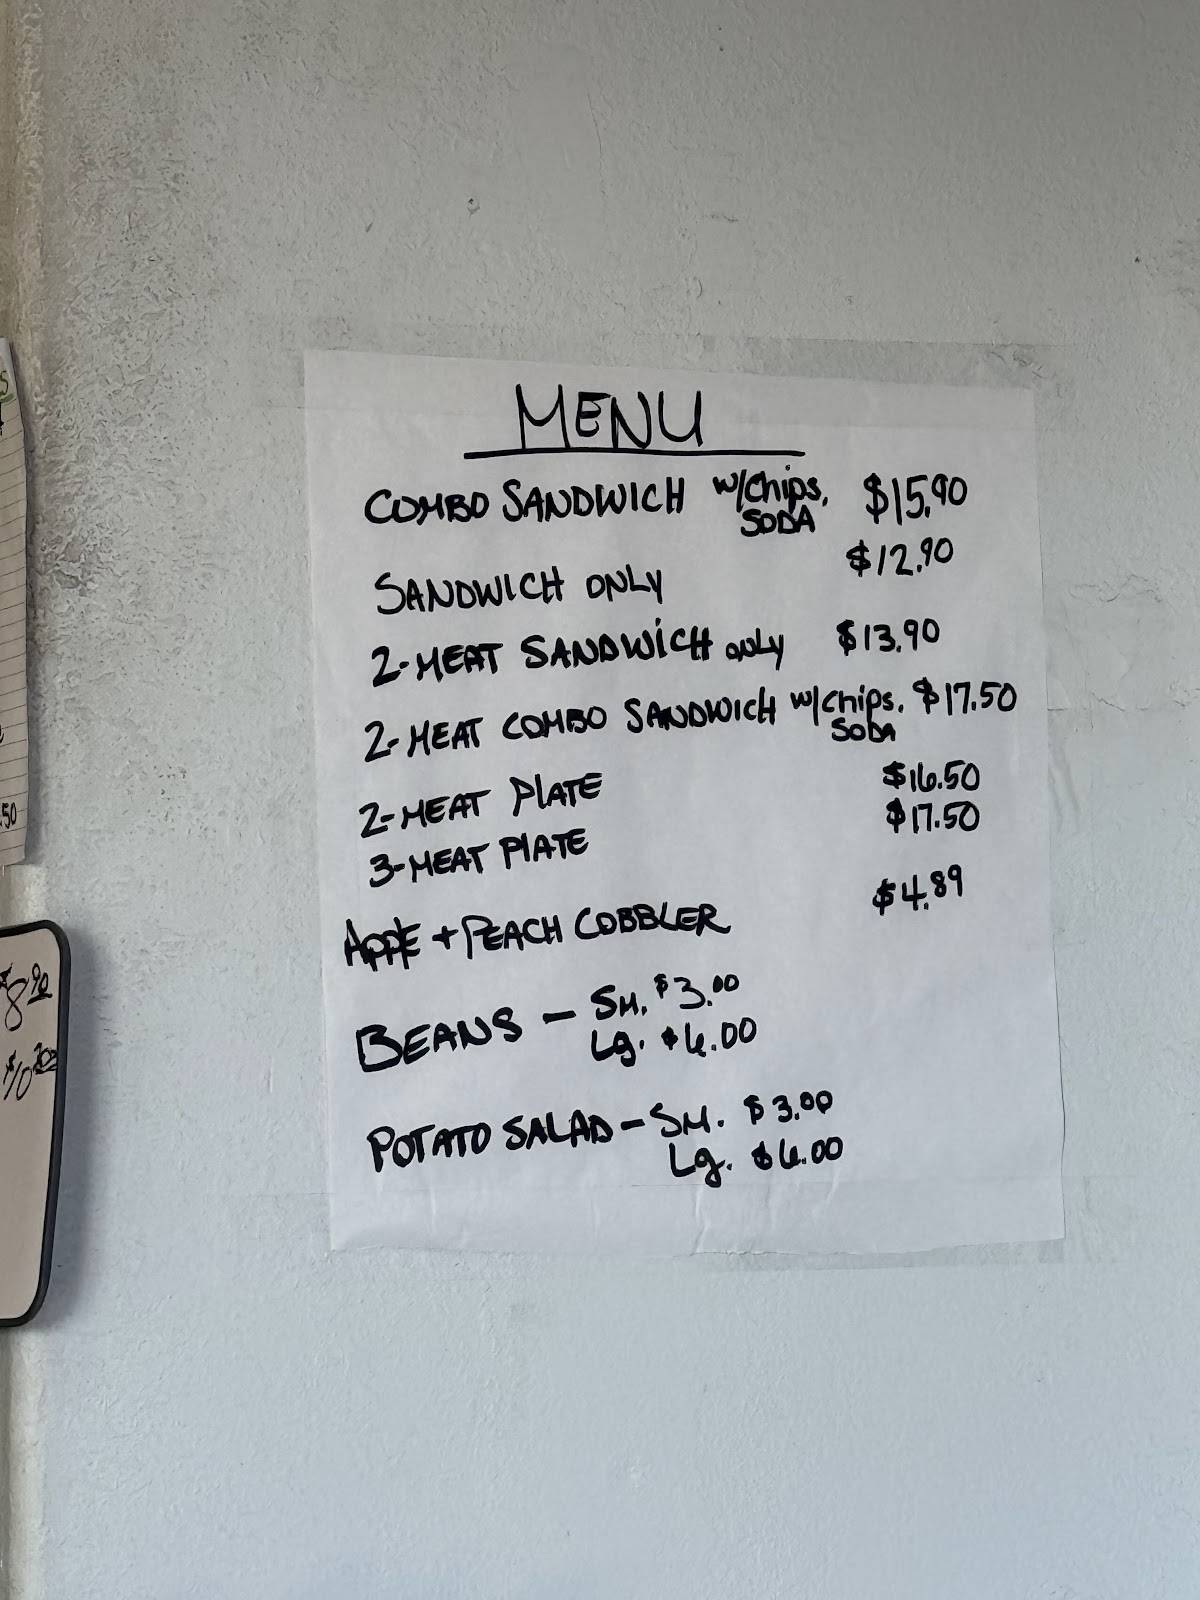 MENU
COMBO SANDWICH w/Chips, SODA $15.90
SANDWICH ONLY $12.90
2-MEAT SANDWICH ONLY $13.90
2-MEAT COMBO SANDWICH w/Chips, SODA $17.50
2-MEAT PLATE $16.50
3-MEAT PLATE $17.50
APPLE + PEACH COBBLER $4.89
BEANS - SM. $3.00
Lg. $6.00
POTATO SALAD - SM. $3.00
Lg. $6.00